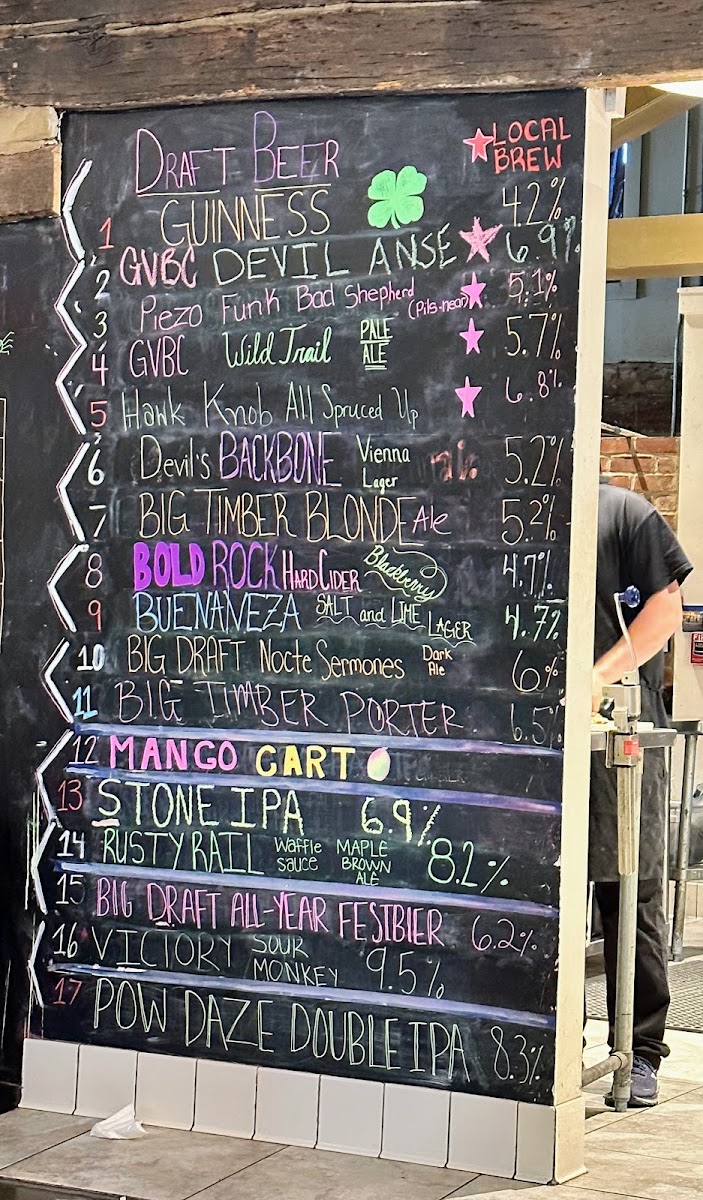 DRAFT BEER
★ LOCAL BREW
1 GUINNESS 4.2%
2 GVBC DEVIL ANSE ★ 6.9%
3 Piezo Funk Bad Shepherd (Pils-near) ★ 5.1%
4 GVBC Wild Trail PALE ALE ★ 5.7%
5 Hawk Knob All Spruced Up ★ 6.8%
6 Devil's BACKBONE Vienna Lager 5.2%
7 BIG TIMBER BLONDE Ale 5.2%
8 BOLD ROCK HARD CIDER Blackberry 4.7%
9 BUENAVEZA SALT and LIME LAGER 4.7%
10 BIG DRAFT Nocte Sermones Dark Ale 6%
11 BIG TIMBER PORTER 6.5%
12 MANGO CART
13 STONE IPA 6.9%
14 RUSTY RAIL Waffle sauce MAPLE BROWN ALE 8.2%
15 BIG DRAFT ALL-YEAR FESTBIER 6.2%
16 VICTORY SOUR MONKEY 9.5%
17 POW DAZE DOUBLE IPA 8.3%